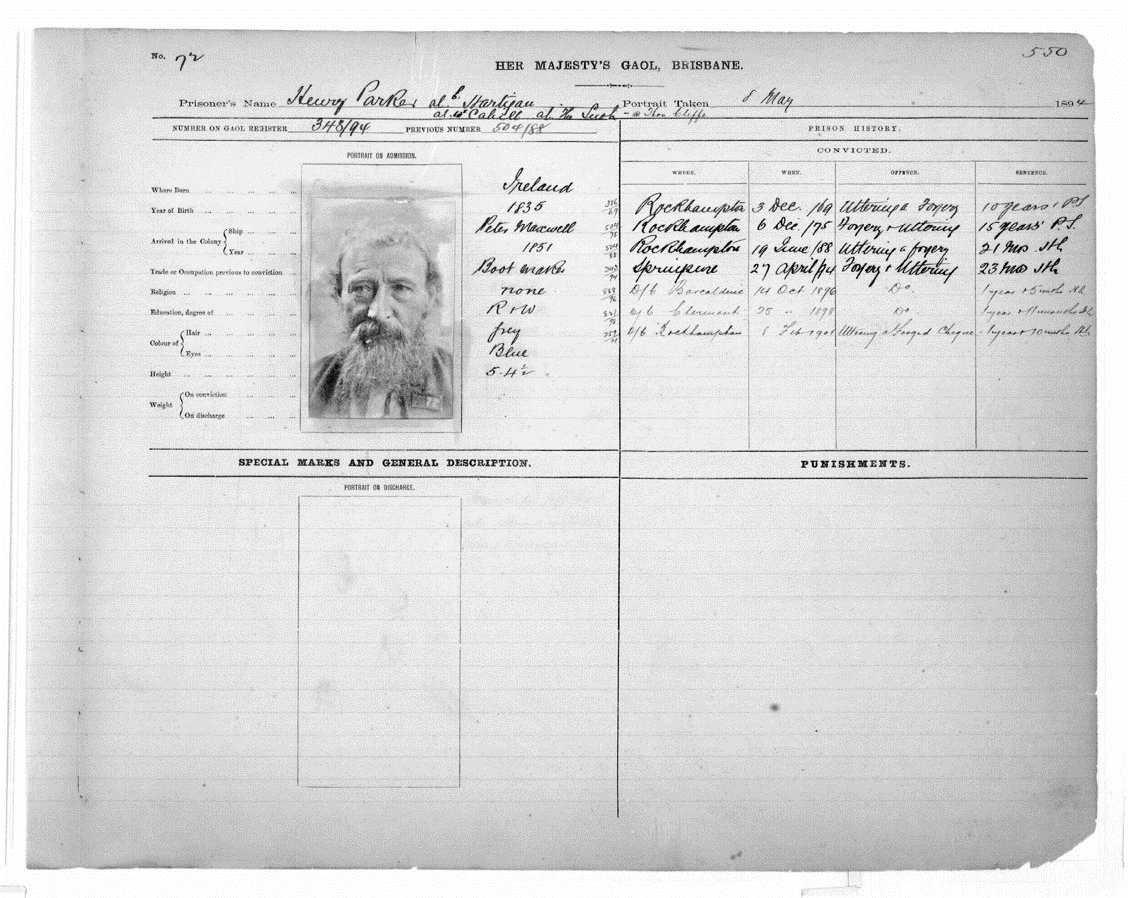 No. 72
550
HER MAJESTY'S GAOL, BRISBANE.
Prisoner's Name Henry Parker als Hartigan Portrait Taken 8 May 1894
als Cahill als Ths - @ Thos. Cliffe
NUMBER ON GAOL REGISTER 348/94 PREVIOUS NUMBER 504/88
PRISON HISTORY.
CONVICTED.
PORTRAIT ON ADMISSION.
WHERE. WHEN. OFFENCE. SENTENCE.
Where Born ... Ireland
Year of Birth ... 1835
Arrived in the Colony
Ship ... Peter Maxwell
Year ... 1851
Trade or Occupation previous to conviction ... Boot maker
Religion ... none
Education, degree of ... R & W
Colour of
Hair ... grey
Eyes ... Blue
Height ... 5.4½
Weight
On conviction ...
On discharge ...
Rockhampton 3 Dec. /69 Uttering a Forgery 10 years' P.S.
Rockhampton 6 Dec. /75 Forgery & Uttering 15 years' P.S.
Rockhampton 19 June /88 Uttering a forgery 21 Mos. Hh
Springsure 27 April /94 Forgery & Uttering 23 Mos Hh
D/b Barcaldine 14 Oct 1896 Do. 1 year & 5 mths Hh
D/b Clermont 25 " 1898 Do 1 year & 11 months Hh
D/b Rockhampton 8 Feb 1901 Uttering a Forged Cheque - 1 year & 10 months Hh
SPECIAL MARKS AND GENERAL DESCRIPTION.
PUNISHMENTS.
PORTRAIT ON DISCHARGE.